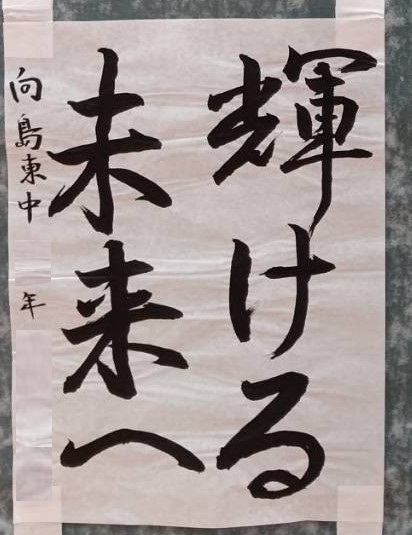 輝ける
未来へ
向島東中 年